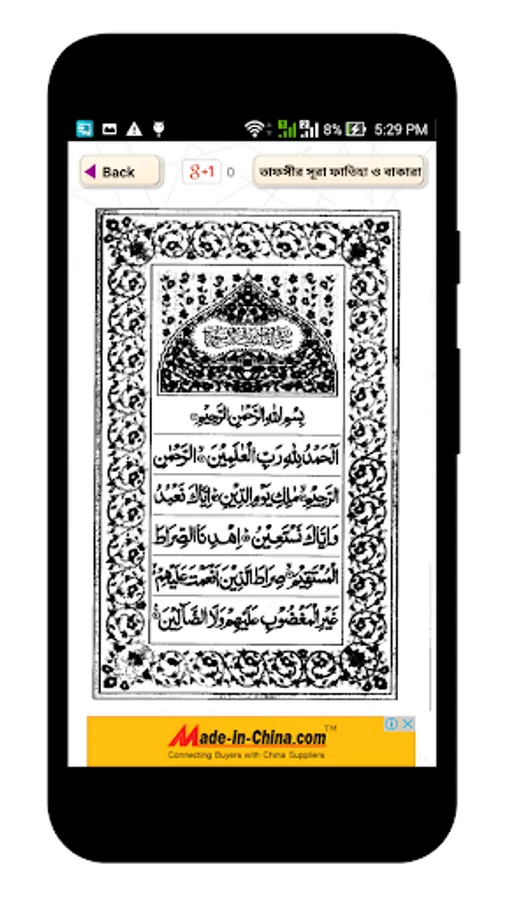 8% 5:29 PM
Back
g+1 0
তাফসীর সূরা ফাতিহা ও বাকারা
بِسْمِ اللهِ الرَّحْمٰنِ الرَّحِيْمِ
اَلْحَمْدُ لِلّٰهِ رَبِّ الْعٰلَمِيْنَ الرَّحْمٰنِ
الرَّحِيْمِ مٰلِكِ يَوْمِ الدِّيْنِ اِيَّاكَ نَعْبُدُ
وَاِيَّاكَ نَسْتَعِيْنُ اِهْدِنَا الصِّرَاطَ
الْمُسْتَقِيْمَ صِرَاطَ الَّذِيْنَ اَنْعَمْتَ عَلَيْهِمْ
غَيْرِ الْمَغْضُوْبِ عَلَيْهِمْ وَلَا الضَّآلِّيْنَ
Made-in-China.com TM
Connecting Buyers with China Suppliers